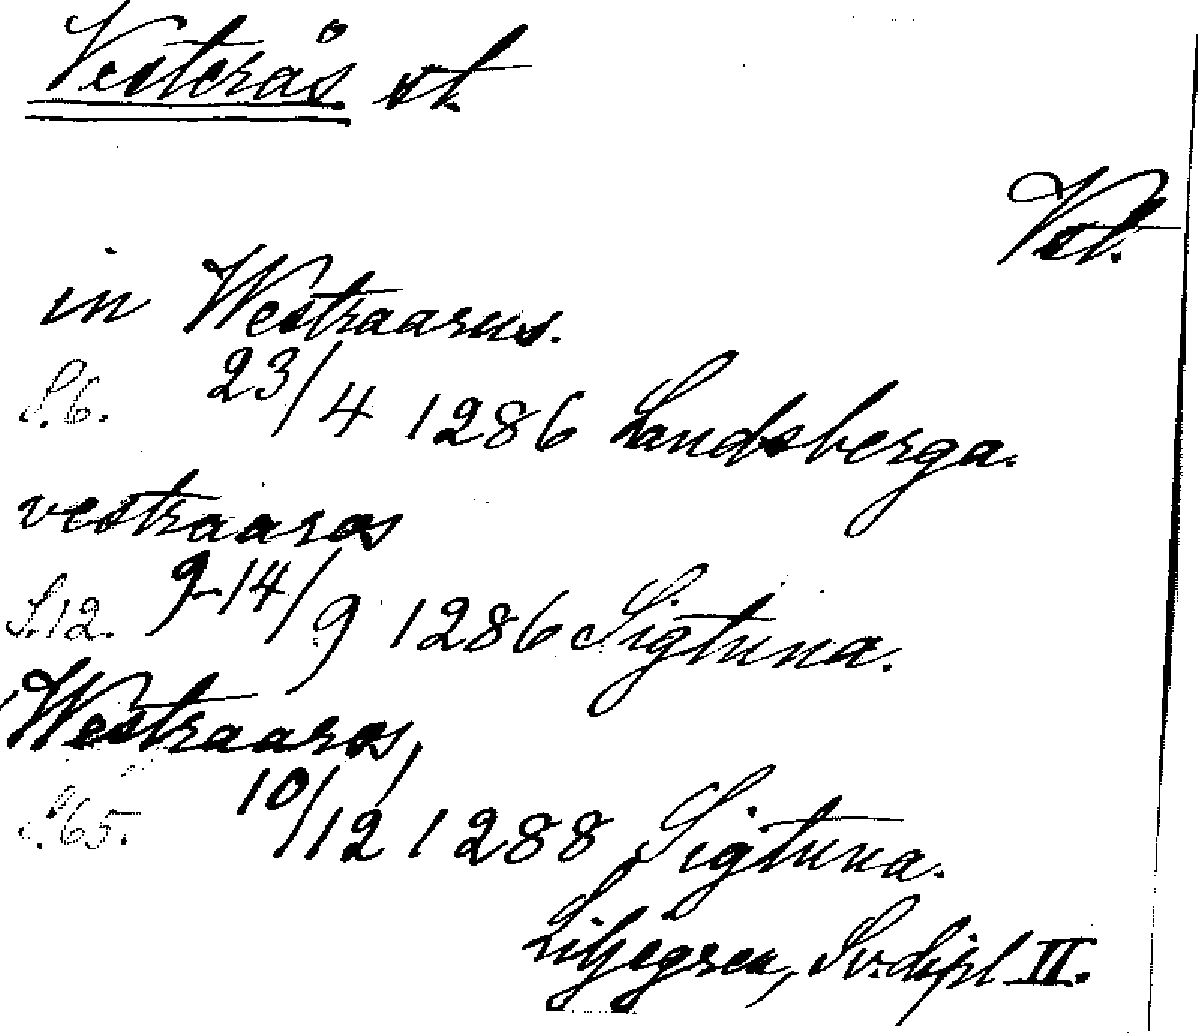 Vesterås st.
Vstl.
in Westraarus.
S.6. 23/4 1286 Landsberga.
vestraaros
S.12. 9-14/9 1286 Sigtuna.
Westraaros,
S.65. 10/12 1288 Sigtuna.
Liljegren, Sv. dipl II.